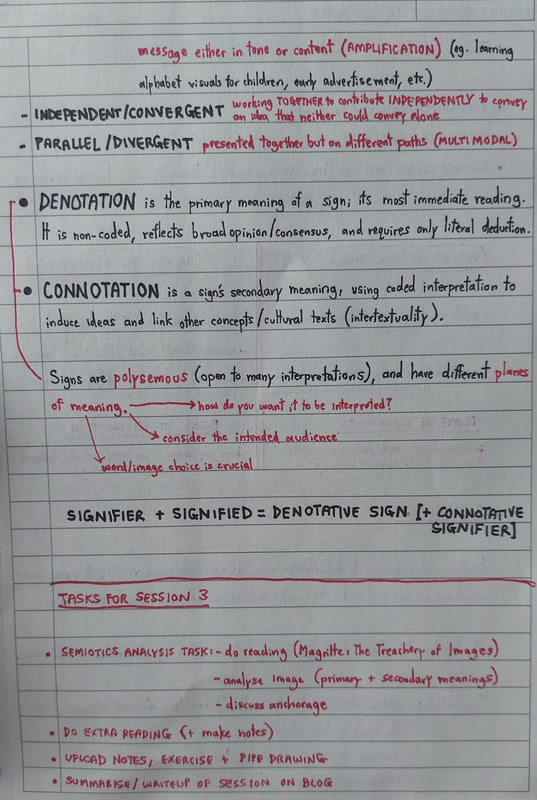 message either in tone or content (AMPLIFICATION) (eg. learning
alphabet visuals for children, early advertisement, etc.)
- INDEPENDENT/CONVERGENT working TOGETHER to contribute INDEPENDENTLY to convey
an idea that neither could convey alone
- PARALLEL/DIVERGENT presented together but on different paths (MULTI MODAL)
• DENOTATION is the primary meaning of a sign; its most immediate reading.
It is non-coded, reflects broad opinion/consensus, and requires only literal deduction.
• CONNOTATION is a sign's secondary meaning, using coded interpretation to
induce ideas and link other concepts/cultural texts (intertextuality).
Signs are polysemous (open to many interpretations), and have different planes
of meaning. → how do you want it to be interpreted?
→ consider the intended audience
→ word/image choice is crucial
SIGNIFIER + SIGNIFIED = DENOTATIVE SIGN [+ CONNOTATIVE
SIGNIFIER]
TASKS FOR SESSION 3
• SEMIOTICS ANALYSIS TASK: - do reading (Magritte: The Treachery of Images)
- analyse image (primary + secondary meanings)
- discuss anchorage
• DO EXTRA READING (+ make notes)
• UPLOAD NOTES, EXERCISE + PIPE DRAWING
• SUMMARISE/WRITEUP OF SESSION ON BLOG